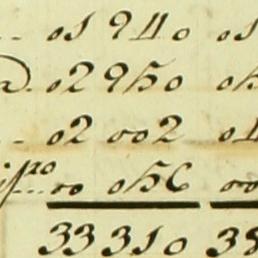 01940 01
02950
02002
ipo 00 056 00
33310 38